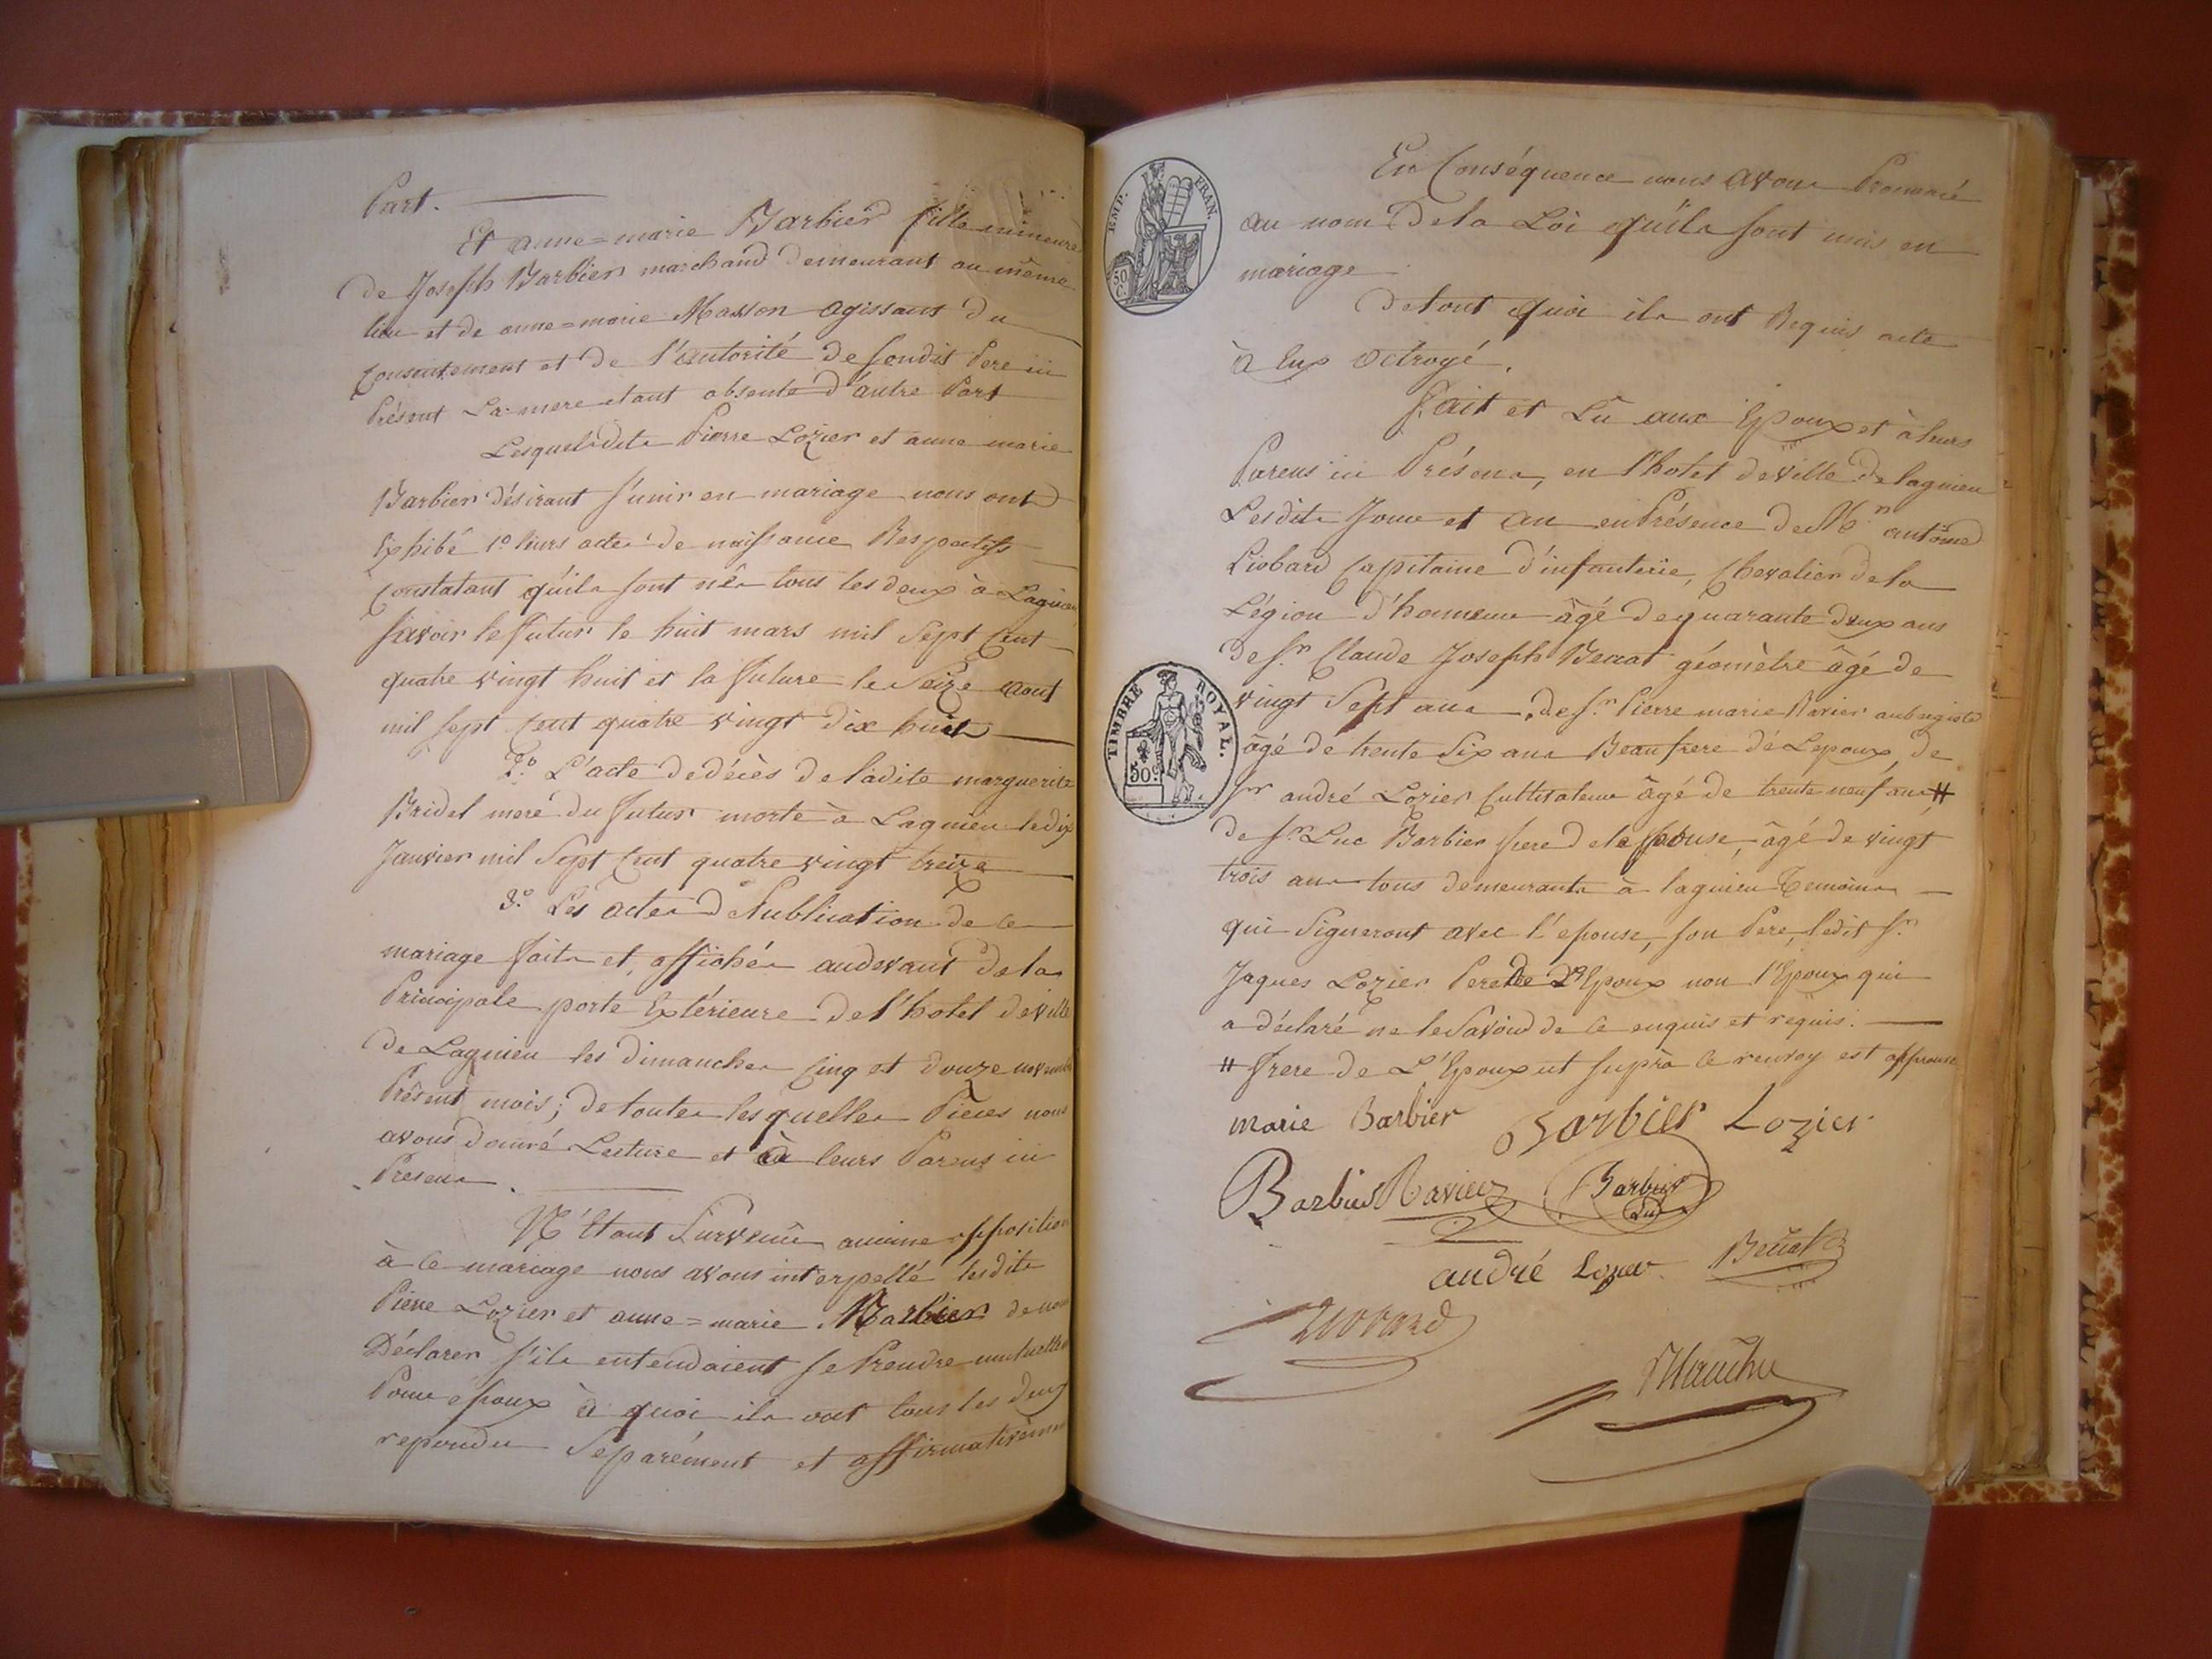 Part.
Et anne=marie Barbier fille mineure
de Joseph Barbier marchand demeurant au même
lieu et de anne=marie Masson agissant du
consentement et de l'autorité de sondit Pere ici
Présent La mere etant absente d'autre Part
Lesquels dits Pierre Lozier et anne marie
Barbier désirant s'unir en mariage nous ont
Exhibé 1º leurs actes de naissance Respectifs
Constatant qu'ils sont nés tous les deux à Lagnieu
savoir le futur le huit mars mil sept cent
quatre vingt huit et la future le Seize aout
mil sept cent quatre vingt dix huit
2º L'acte de décès de ladite marguerite
Bridel mere du futur morte à Lagnieu le dix
Janvier mil Sept Cent quatre vingt treize
3º Les actes de Publication de ce
mariage faits et affichés audevant de la
Principale porte Extérieure de l'hotel de ville
de Lagnieu les dimanches Cinq et douze novembre
Présent mois; de toutes lesquelles Pièces nous
avons donné Lecture et à leurs Parens ici
Présens.
N'étant Survenu aucune opposition
à ce mariage nous avons interpellé lesdits
Pierre Lozier et anne=marie Barbier de nous
Déclarer s'ils entendaient se Prendre mutuellem
Pour epoux à quoi ils ont tous les deux
repondu Separément et affirmativement
EMP. FRAN.
50 C.
En Conséquence nous avons Prononcé
au nom de la Loi qu'ils sont unis en
mariage
de tout quoi ils ont Requis acte
à eux octroyé.
Fait et Lû aux Epoux et à leurs
Parens ici Présens, en l'hotel de ville de lagnieu
Lesdits Jour et an en Présence de Mr. antoine
Liobard Capitaine d'infanterie, Chevalier de la
Légion d'honneur âgé de quarante deux ans
de Sr. Claude Joseph Benat géomètre âgé de
TIMBRE ROYAL.
50c
vingt Sept ans, de Sr. Pierre marie Ravier aubergiste
âgé de trente Six ans Beaufrere de Lepoux, de
Sr andré Lozier Cultivateur âgé de trente neuf ans #
de Sr. Luc Barbier frere de lepouse, âgé de vingt
trois ans tous demeurants à lagnieu Temoins
qui Signeront avec l'epouse, son Pere, ledit Sr.
Jaques Lozier Pere de L'Epoux non l'Epoux qui
a déclaré ne le Savoir de ce enquis et requis.
# frere de L'Epoux ut suprà ce renvoy est approuvé
marie Barbier Barbier Lozier
Barbier Ravier Barbier
Luc
andré Lozier Benat
Liobard